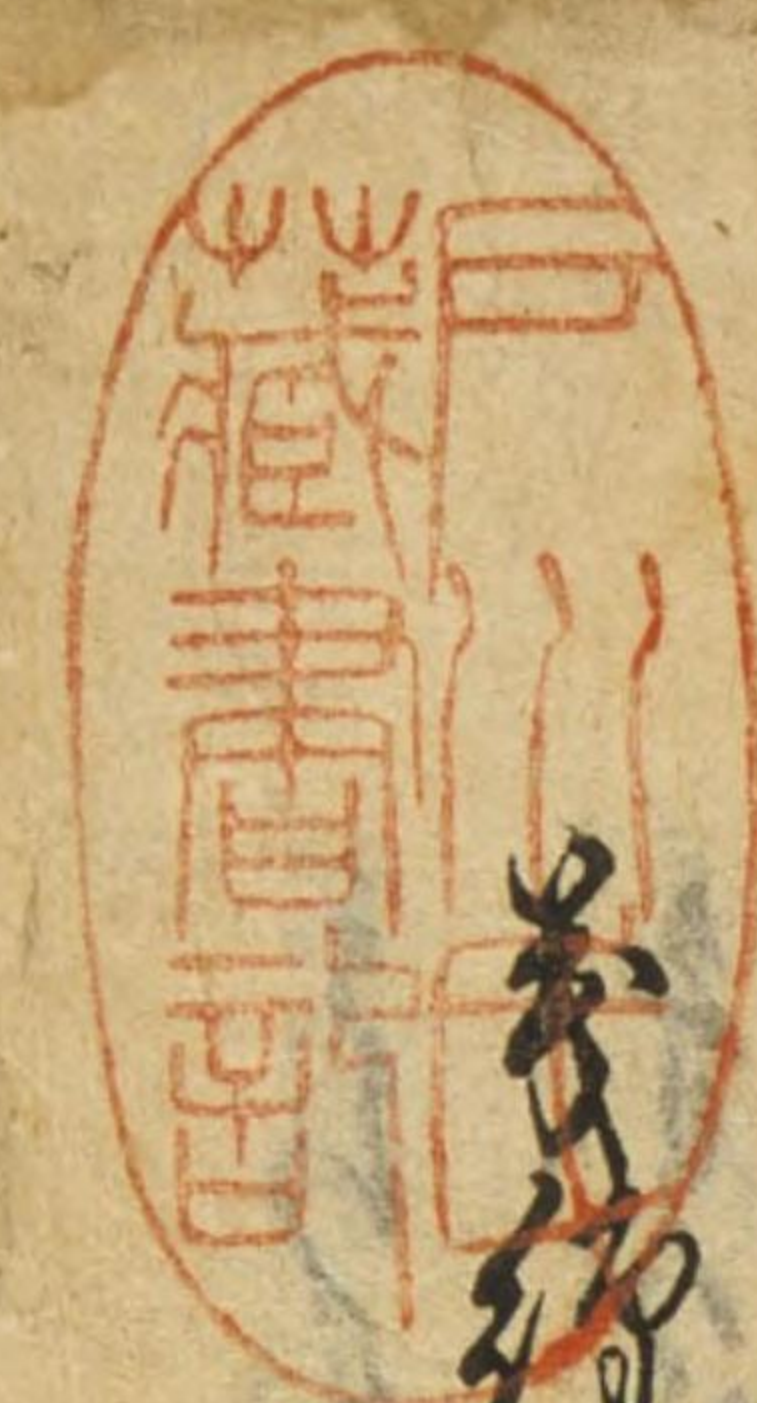 戸川氏
藏書記